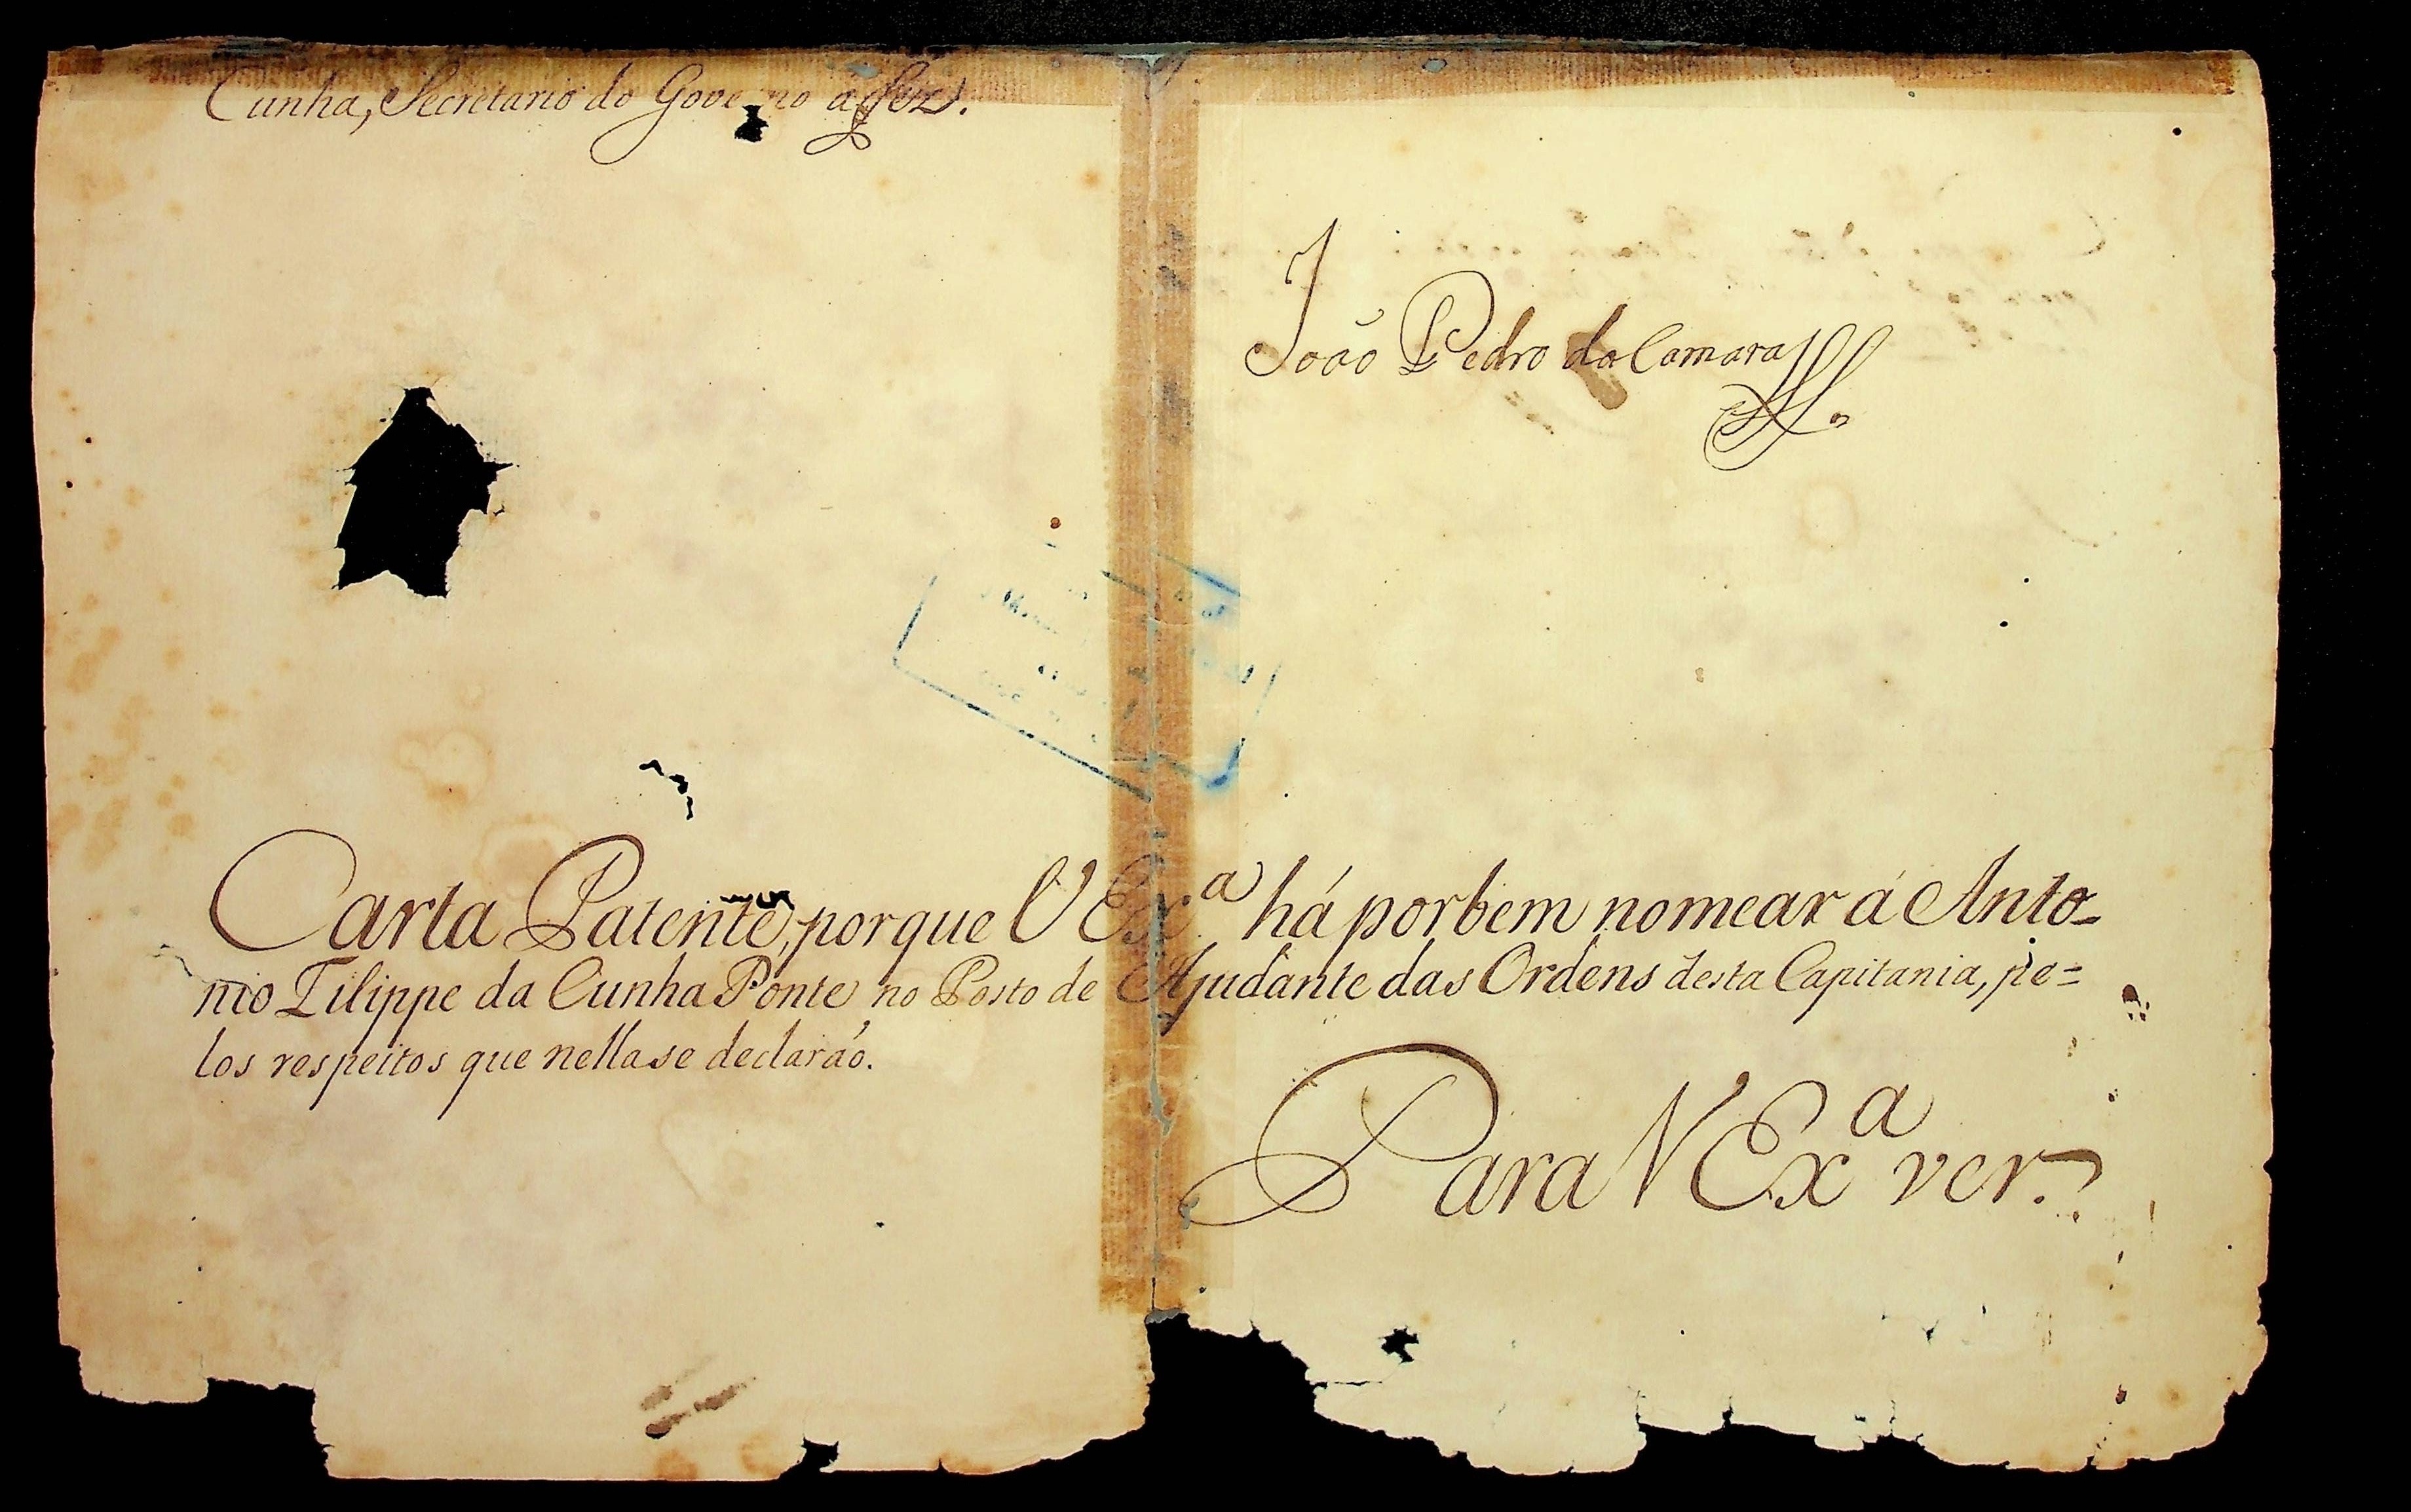 Cunha, Secretario do Governo a fez.
João Pedro da Camara
Carta Patente, porque V Exª há por bem nomear á Anto=
nio Filippe da Cunha Ponte no Posto de Ajudante das Ordens desta Capitania, pe=
los respeitos que nella se declaraõ.
Para V Exª ver.